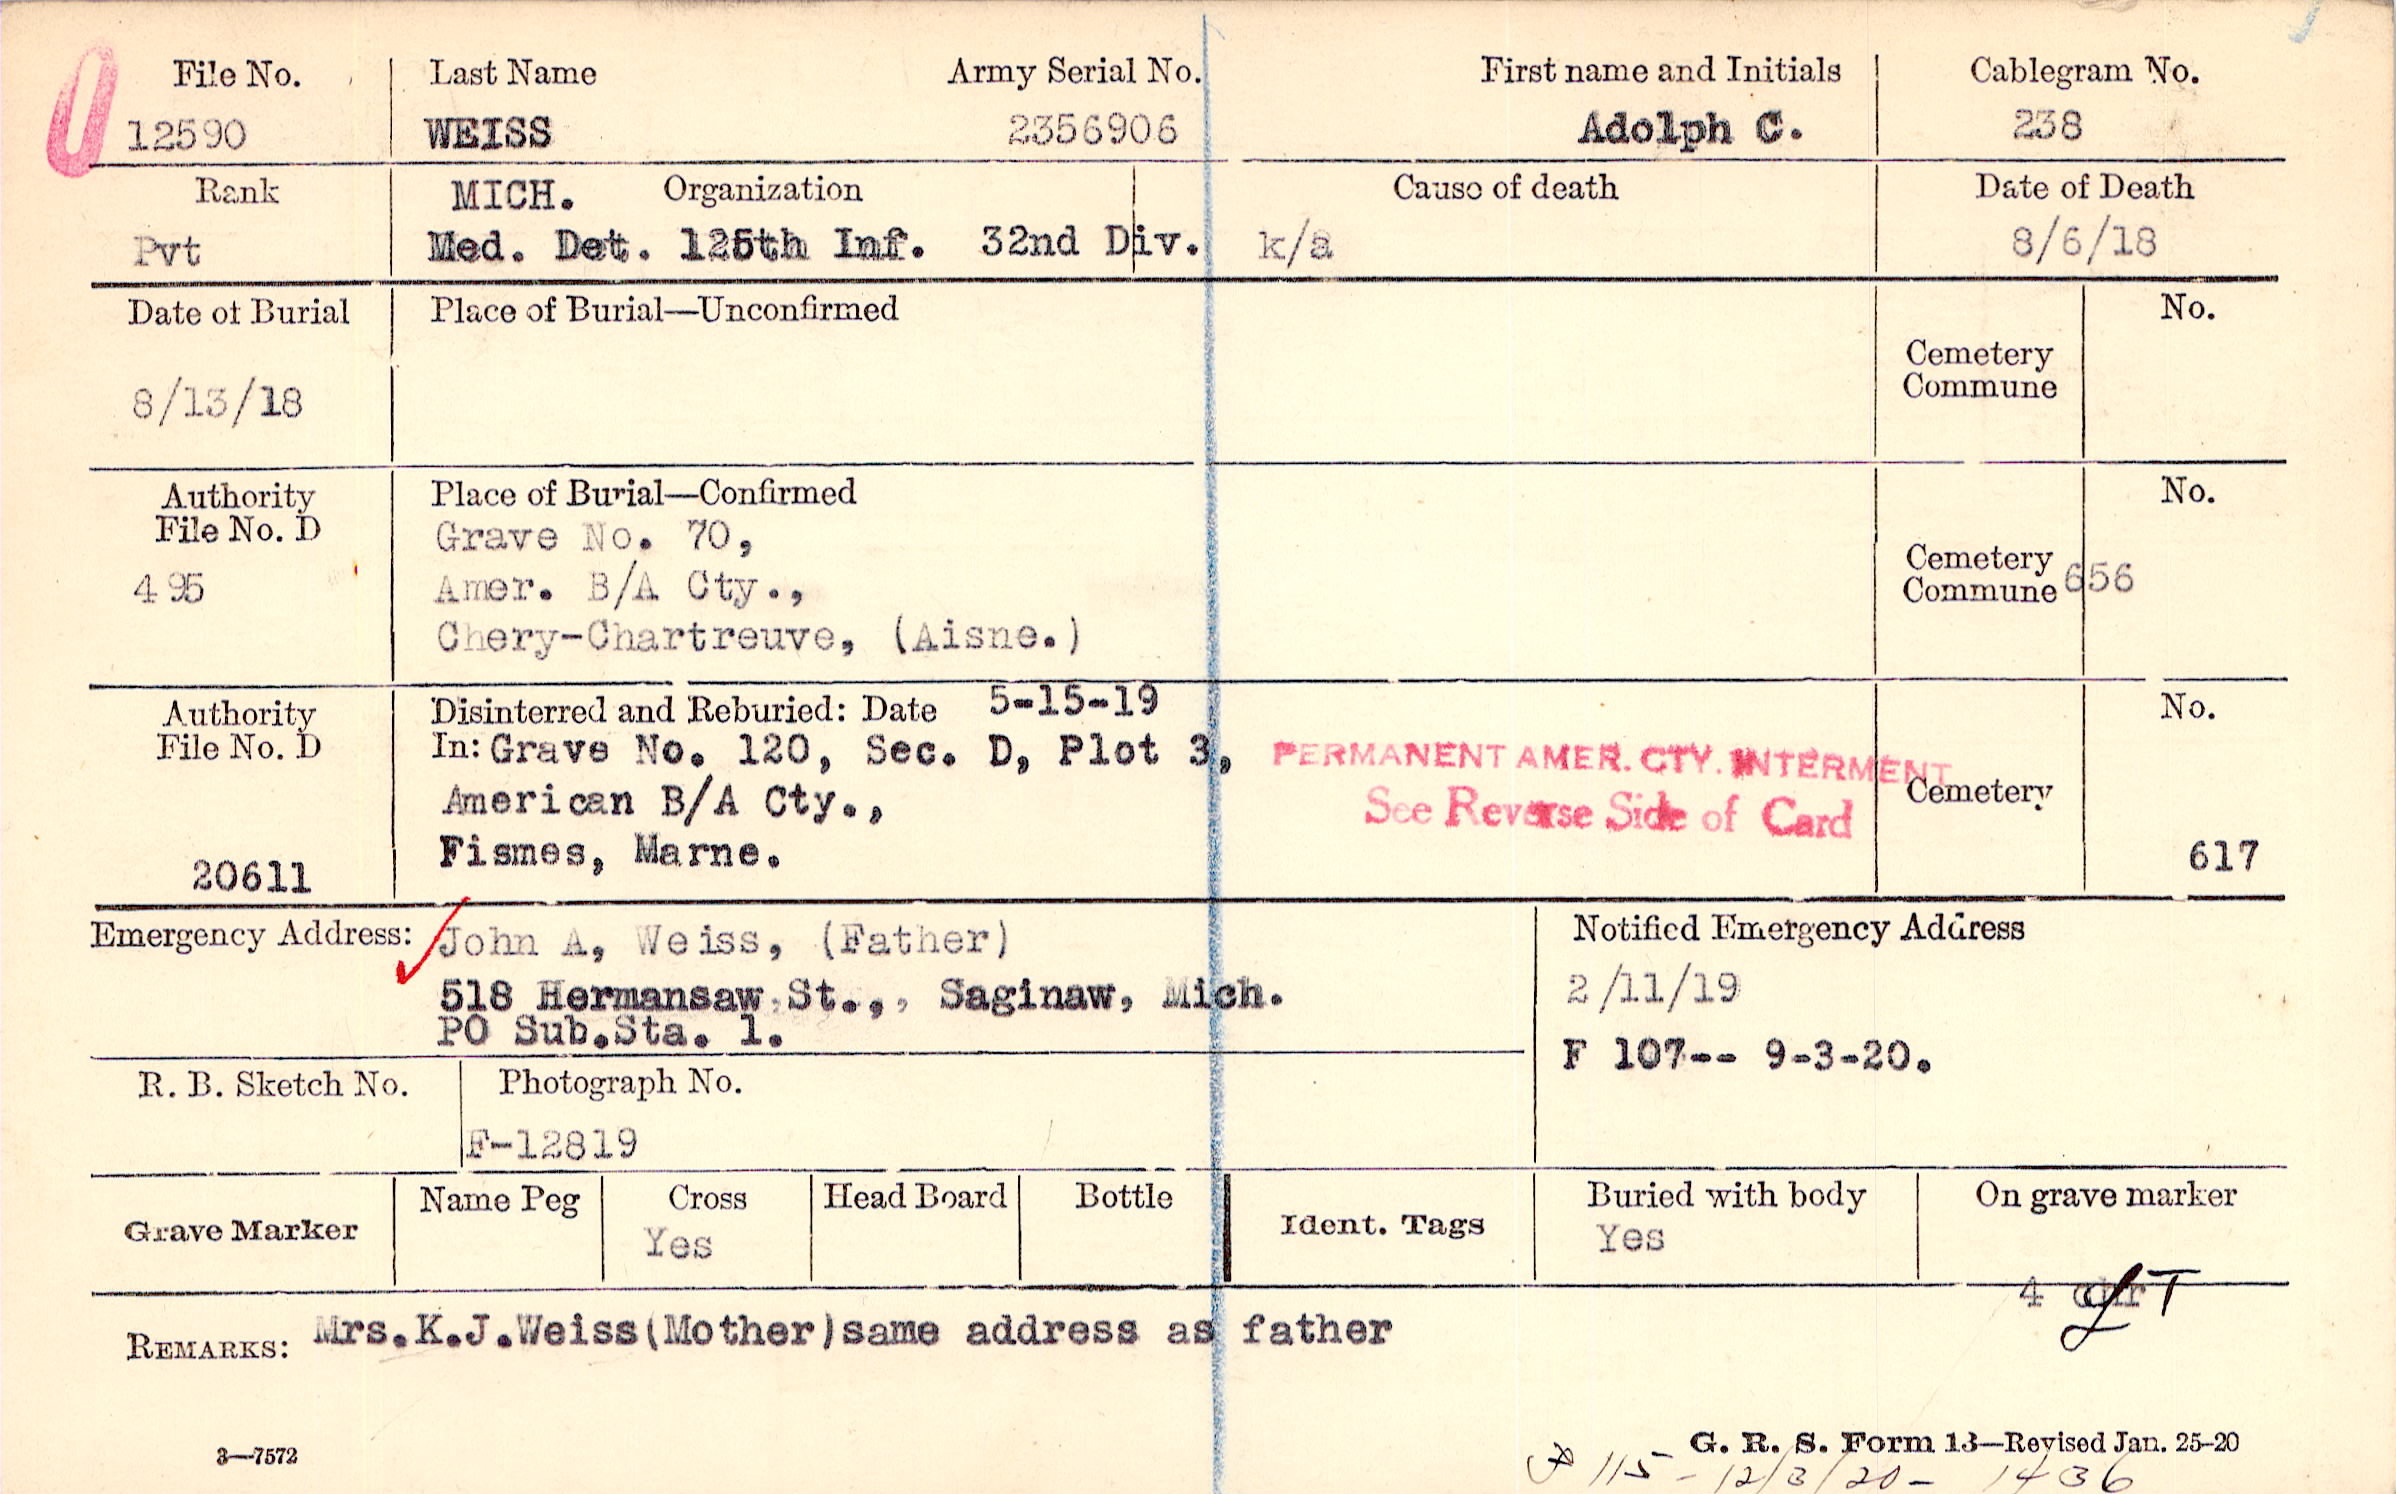 File No. Last Name Army Serial No. First name and Initials Cablegram No.
12590 WEISS 2356906 Adolph C. 238
Rank MICH. Organization Cause of death Date of Death
Pvt Med. Det. 125th Inf. 32nd Div. k/a 8/6/18
Date of Burial Place of Burial—Unconfirmed No.
Cemetery
Commune
8/13/18
Authority Place of Burial—Confirmed No.
File No. D Grave No. 70,
495 Amer. B/A Cty., Cemetery
Commune 656
Chery-Chartreuve, (Aisne.)
Authority Disinterred and Reburied: Date 5-15-19 No.
File No. D In: Grave No. 120, Sec. D, Plot 3, PERMANENT AMER. CTY. INTERMENT
American B/A Cty., See Reverse Side of Card Cemetery
Fismes, Marne.
20611 617
Emergency Address: John A, Weiss, (Father) Notified Emergency Address
518 Hermansaw St.,, Saginaw, Mich. 2/11/19
PO Sub.Sta. 1. F 107-- 9-3-20.
R. B. Sketch No. Photograph No.
F-12819
Grave Marker Name Peg Cross Head Board Bottle Ident. Tags Buried with body On grave marker
Yes Yes
4
REMARKS: Mrs.K.J.Weiss(Mother)same address as father
3—7572 G. R. S. Form 13—Revised Jan. 25-20
115 - 12/3/20 - 1436